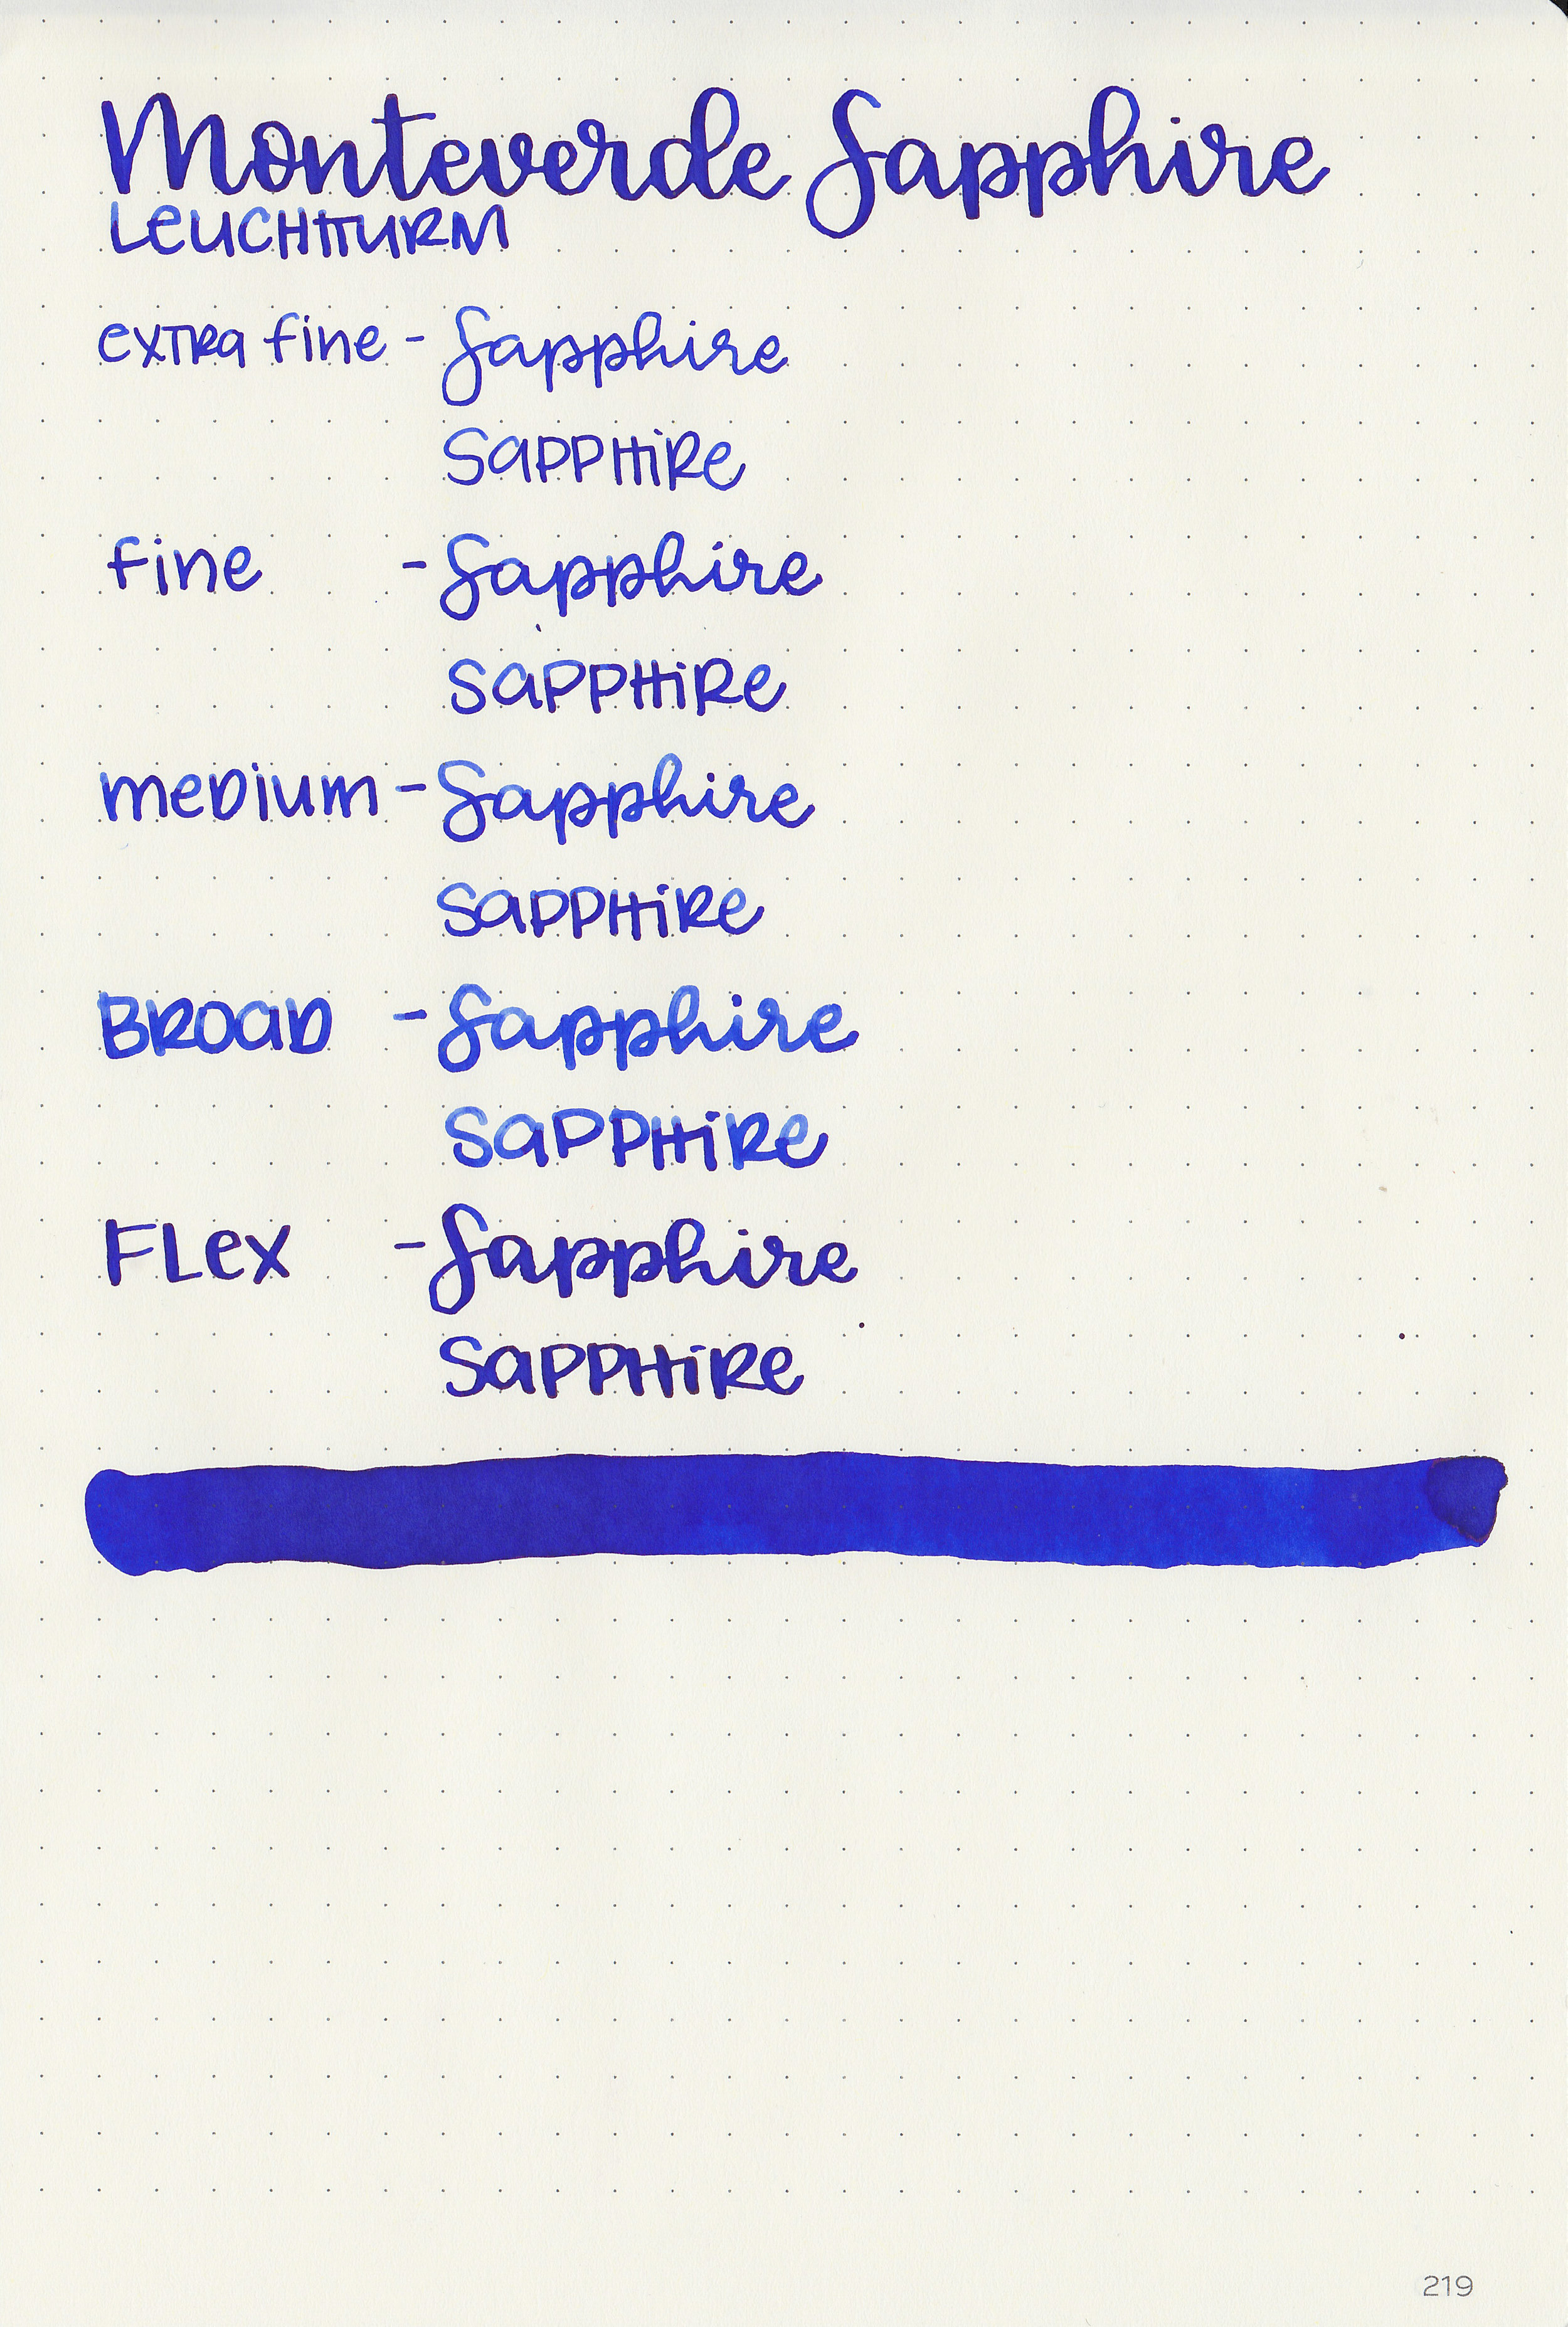 Monteverde Sapphire
LEUCHTTURM
extra fine - Sapphire
SAPPHiRe
fine - Sapphire
SAPPHiRe
meDium - Sapphire
SAPPHiRe
BROAD - Sapphire
SAPPHiRe
FLex - Sapphire
SAPPHiRe
219